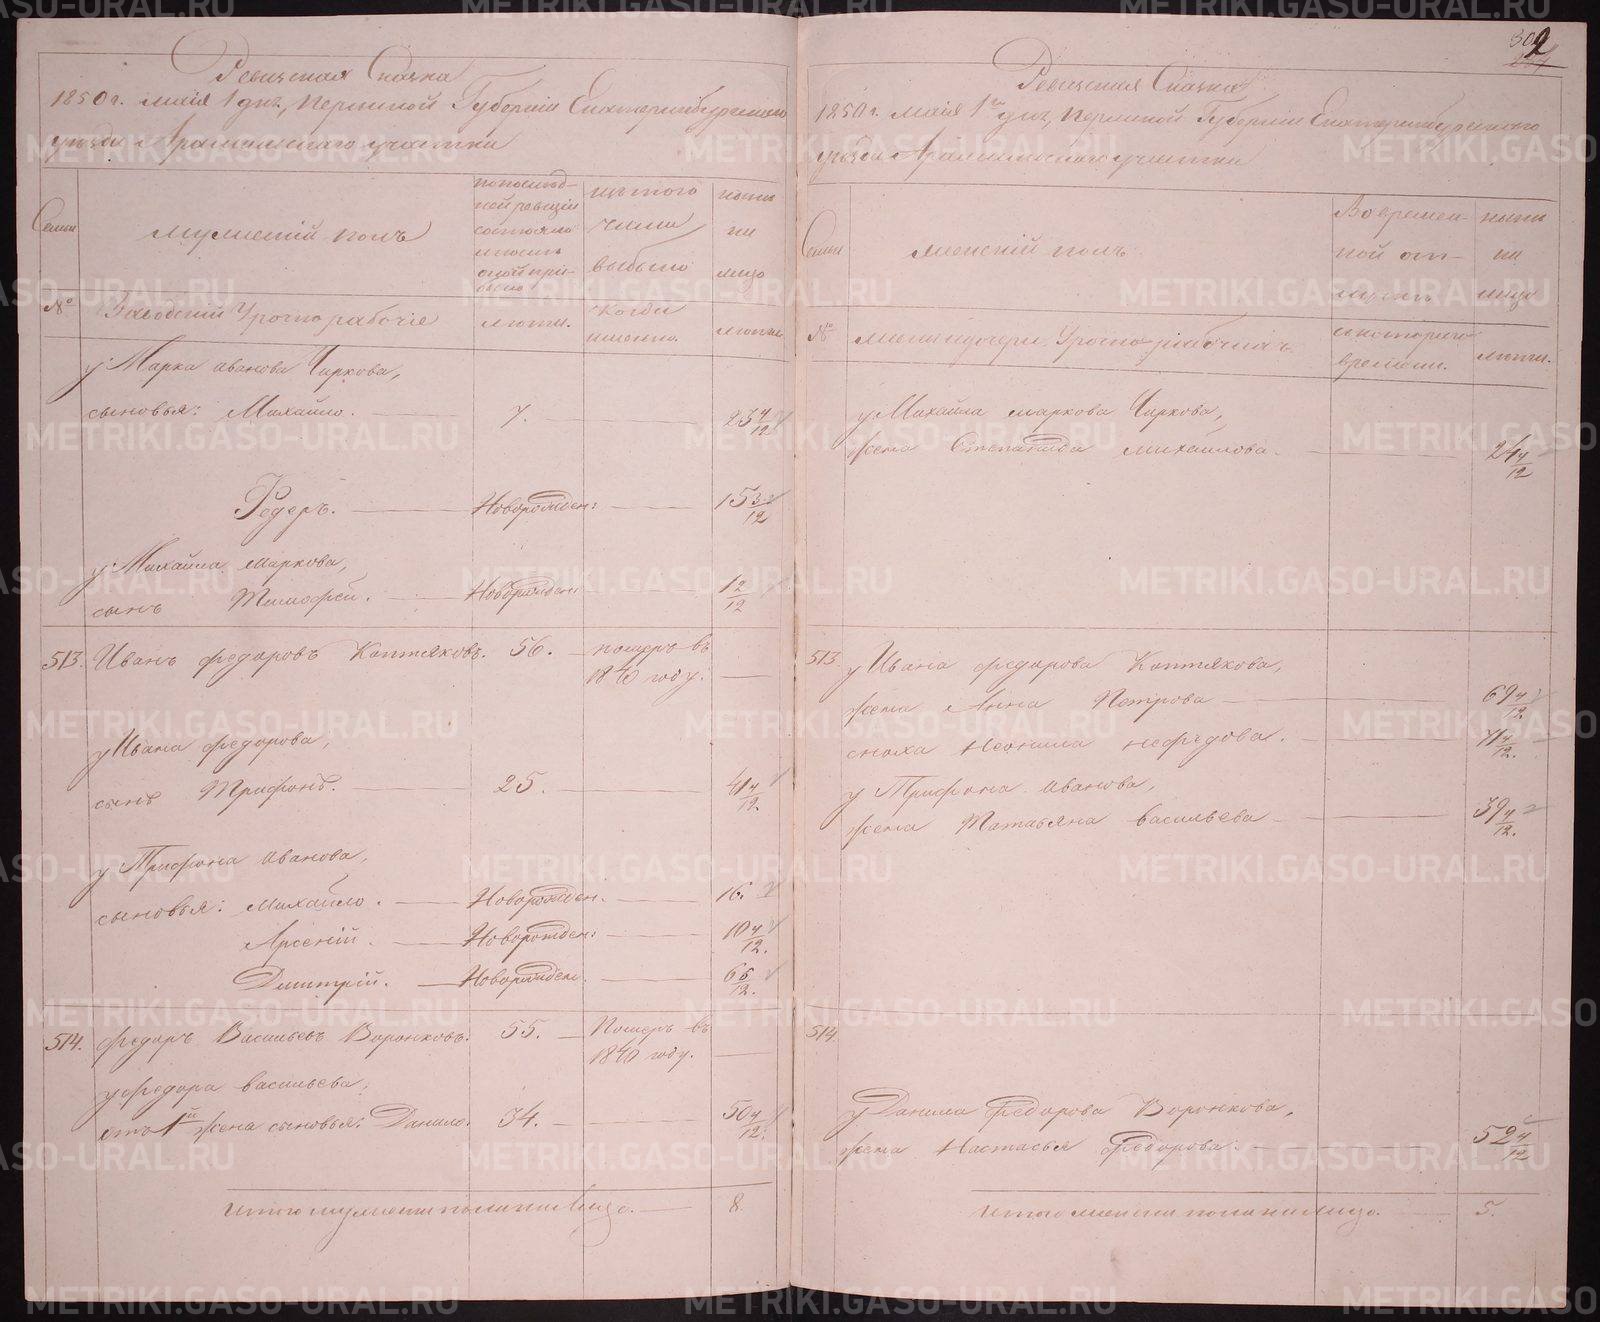 302
Ревизская Сказка
1850 г. маія 1 дня, Пермской Губерніи Екатеринбургскаго
уезда Арамильскаго участка
Семьи
мужескій полъ
по послед-
ней ревизіи
состояло
и после
оной при-
было
изъ того
числа
выбыло
ныне
на
лицо
№
Заводскіе Урочно рабочіе
лета.
Когда
именно.
лета.
у Марка Иванова Чиркова,
сыновья: Михайло. 7. 23 4/12
Федеръ. Новорожден: 15 3/12
у Михайла Маркова,
сынъ Тимофей. Новорожден 1 2/12
513. Иванъ Федоровъ Коптяковъ. 56. померъ въ
1840 году.
у Ивана Федорова,
сынъ Трифонъ. 25. 41 4/12
у Трифона Иванова,
сыновья: Михайло. Новорожден. 16.
Арсеній. Новорожден: 10 4/12.
Дмитрій. Новорожден. 6 6/12.
514. Федоръ Васильевъ Воронковъ. 55. Померъ въ
1840 году.
у Федора Васильева,
отъ 1й жены сыновья: Данило. 34. 50 4/12.
Итого мужеска пола на лицо. 8.
Ревизская Сказка
1850 г. маія 1го дня, Пермской Губерніи Екатеринбургскаго
уезда Арамильскаго участка
Семьи
женскій полъ
Во времен-
ной от-
лучке
ныне
на
лицо
№
жены и дочери Урочно рабочихъ
с котораго
времени.
лета.
у Михайла Маркова Чиркова,
жена Степанида Михайлова. 24 4/12
513. у Ивана Федорова Коптякова,
жена Анна Петрова 69 4/12.
сноха Неонила Нефедова. 71 4/12.
у Трифона Иванова,
жена Татьяна Васильева 39 4/12.
514.
у Данила Федорова Воронкова,
жена Настасья Федорова. 52 4/12
Итого женска пола на лицо. 5.
METRIKI.GASO-URAL.RU